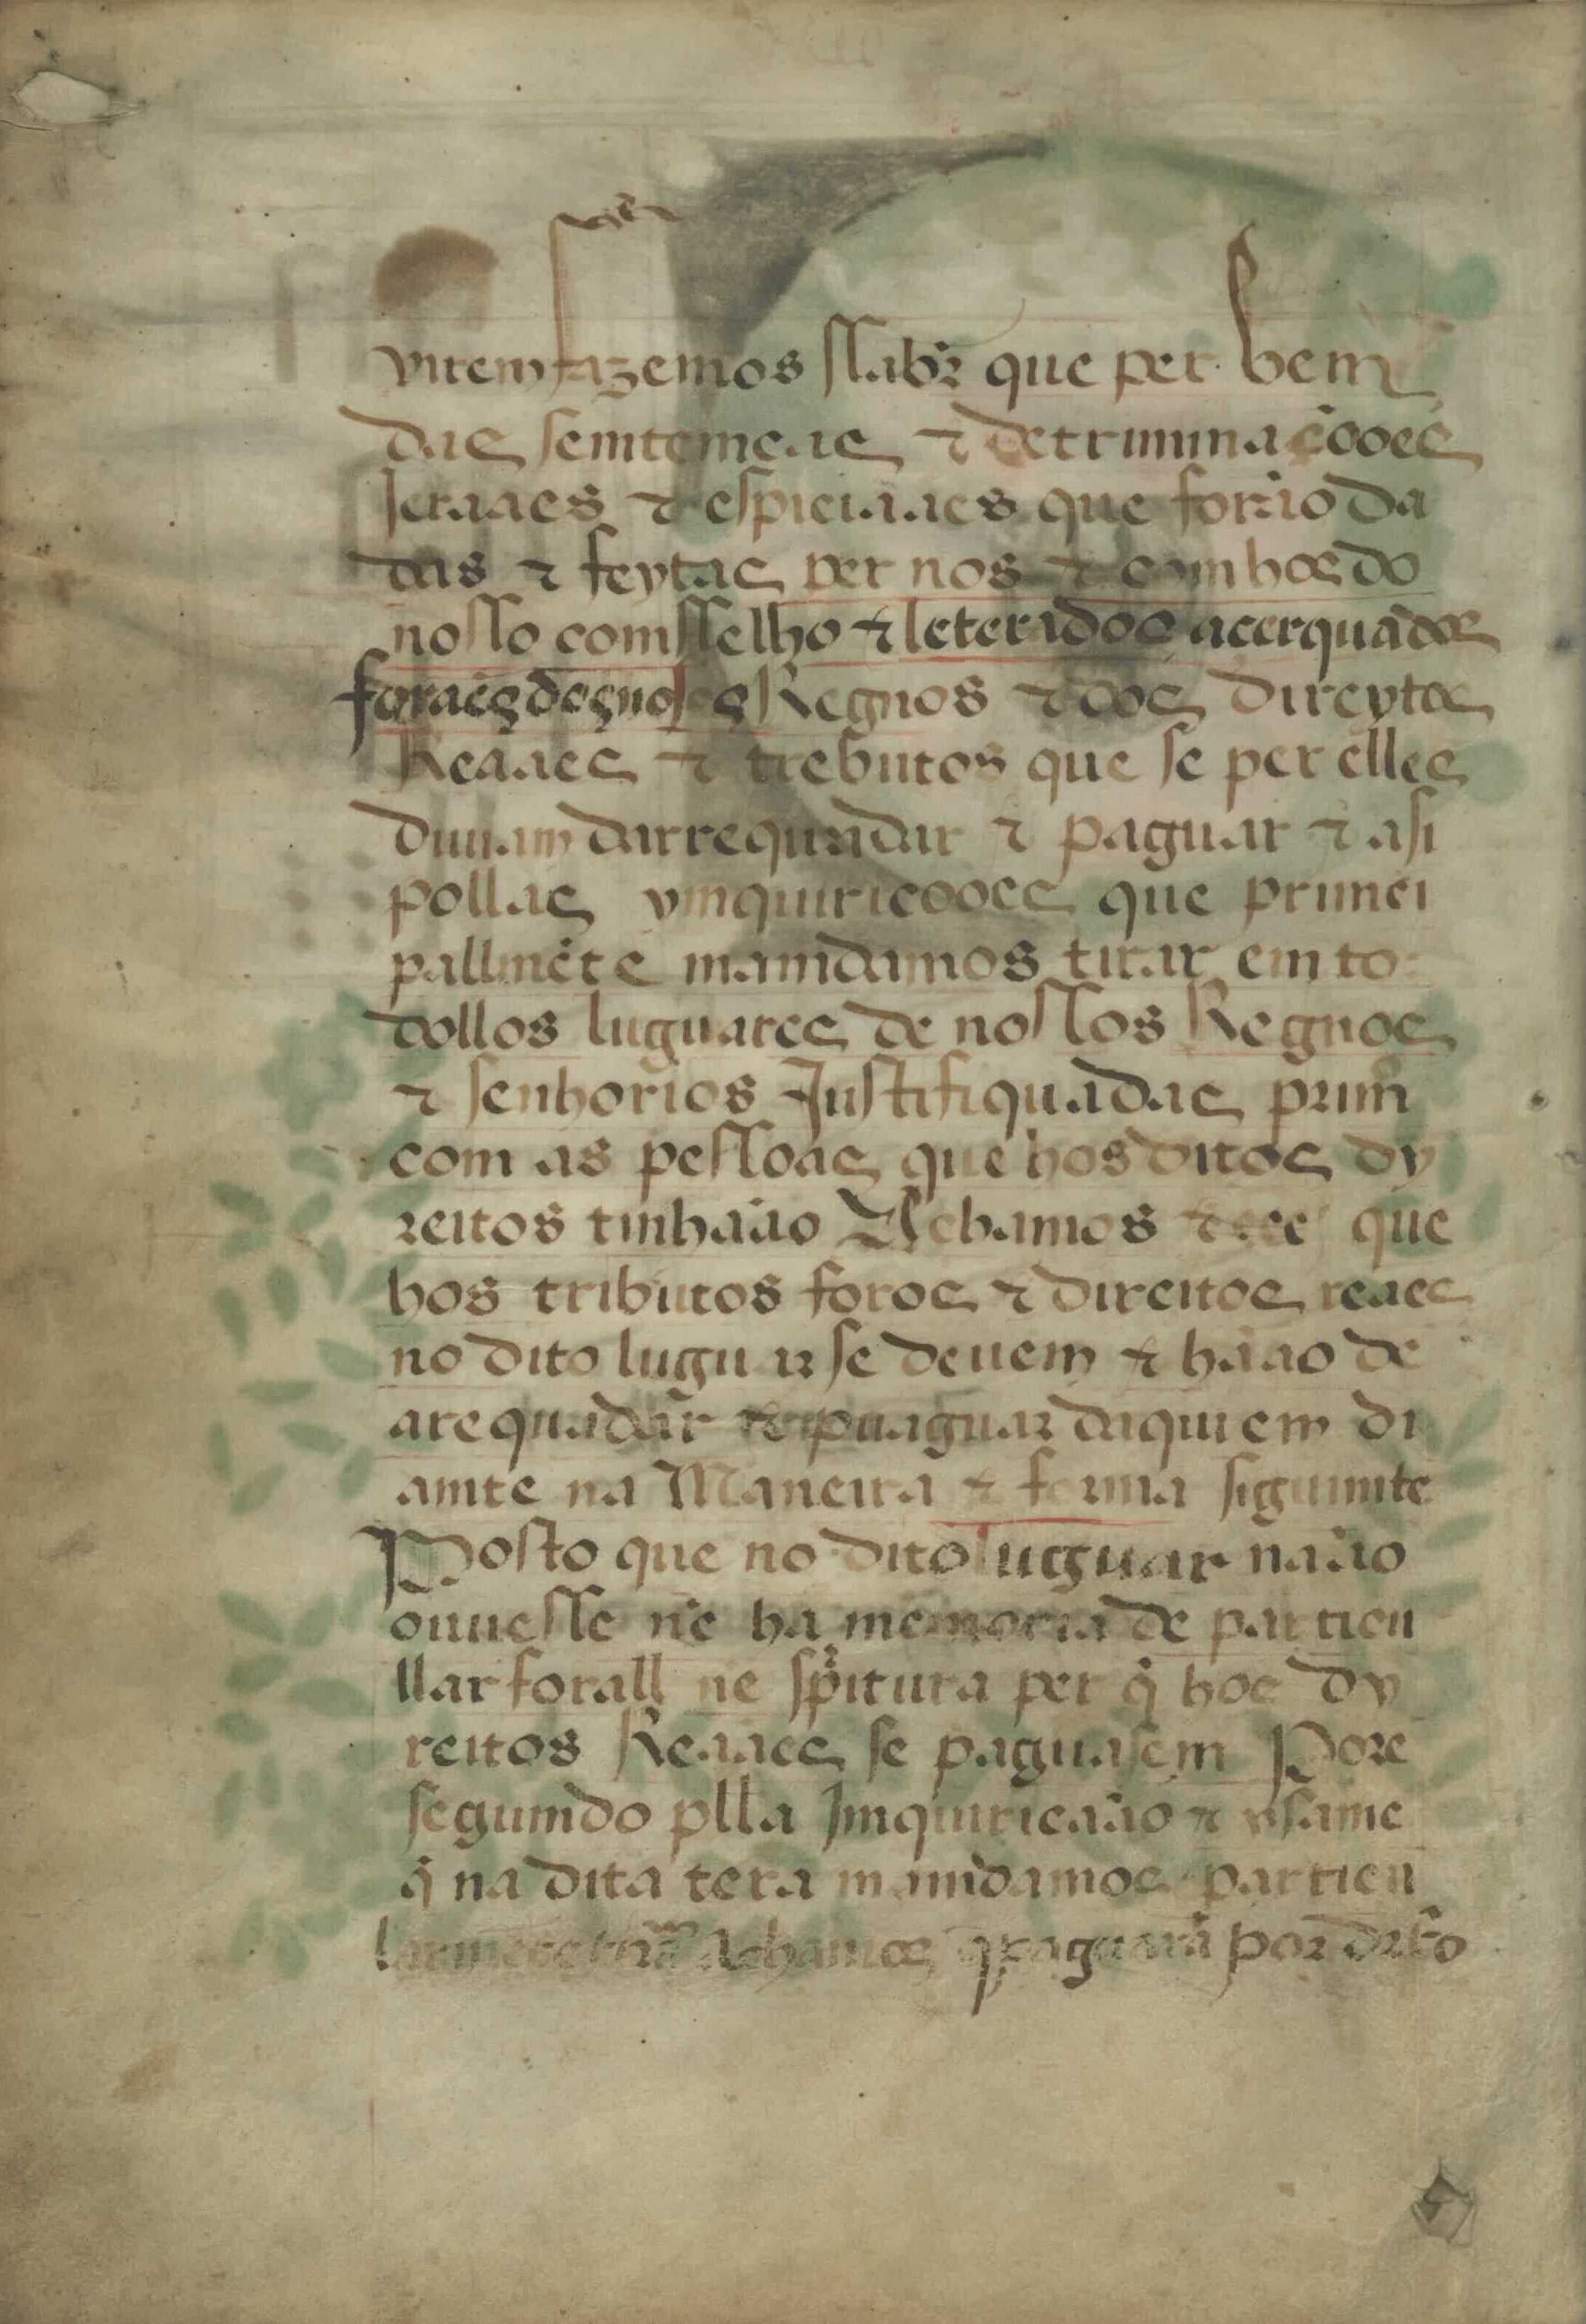 virem fazemos ssabr̃ que per bem
das semtemcas ⁊ detriminaçõoes
Jeraaes ⁊ espiciaaes que forão da
das ⁊ feytas per nos ⁊ com hos do
nosso comsselho ⁊ leterados acerqua dos
foraes des nosos Regnos ⁊ dos direytos
Reaaes ⁊ trebutos que se per elles
diviam darrequadar ⁊ paguar ⁊ asi
pollas ymquiricooes que primci
pallmẽte mamdamos tirar em to
dollos luguares de nossos Regnos
⁊ senhorios Justifiquadas prim̃
com as pessoas que hos ditos dy
reitos tinhãao Achamos que
hos tributos foros ⁊ direitos reaes
no dito luguar se devem ⁊ hãao de
arequadar ⁊ paguar daqui em di
amte na Maneira ⁊ forma siguimte
Posto que no dito lugguar nãao
ouuesse nẽ ha memoria de particu
llar forall ne sp̃itura per q̃ hos dy
reitos Reaaes se paguasem Pore
segumdo plla Imquiricãao ⁊ vsamc
q̃ na dita tera mamdamos particu
Achamos q̃ paguarã por drto